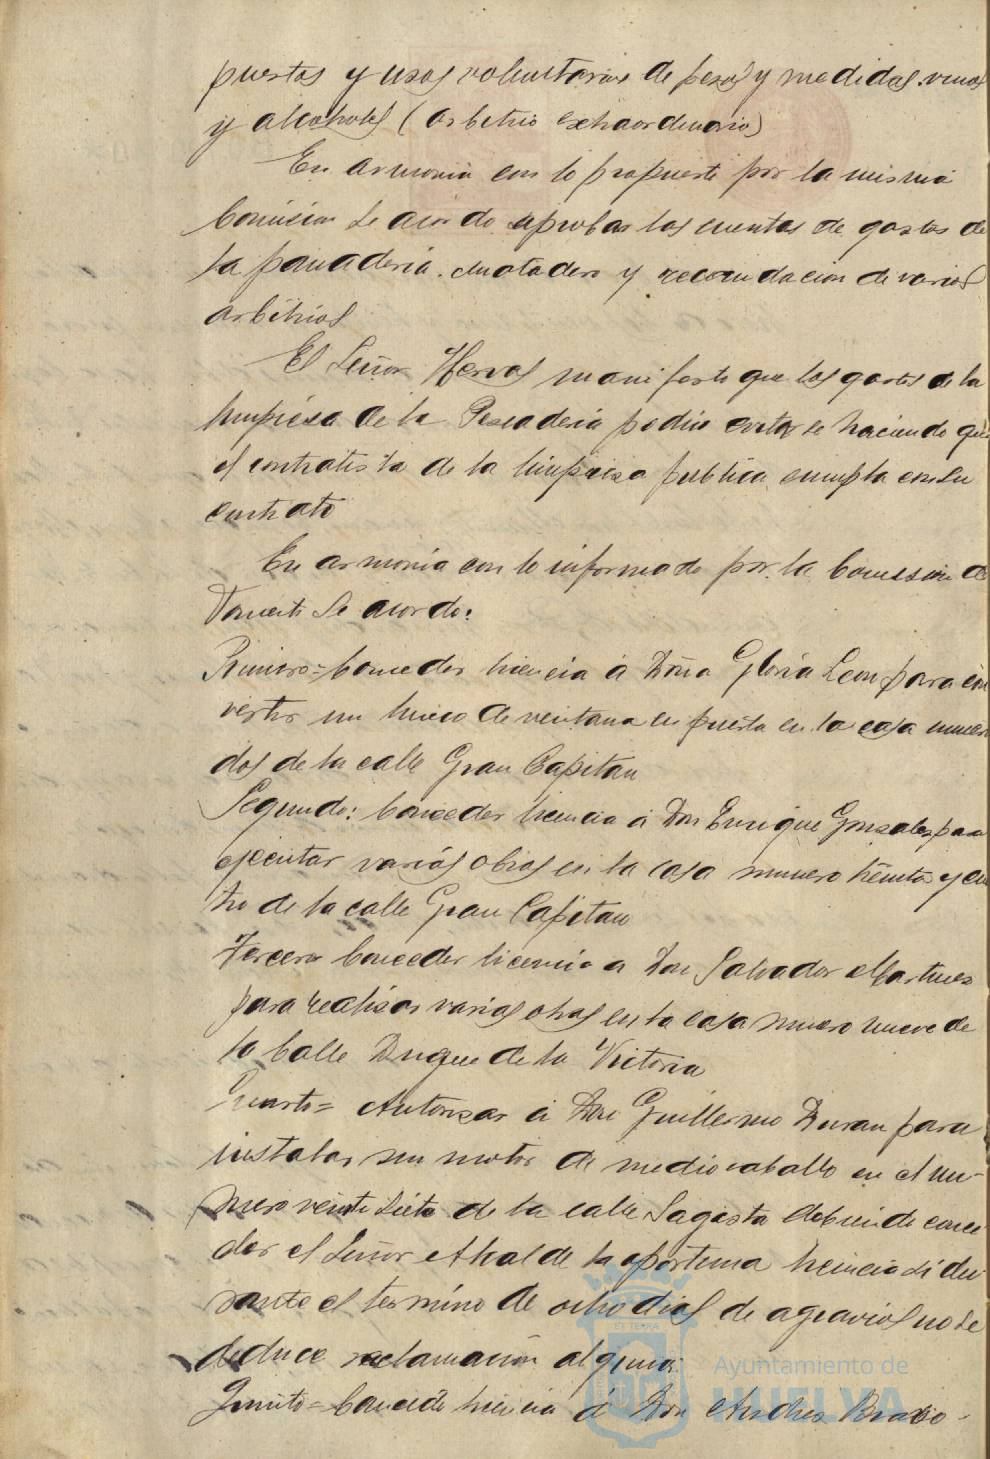 puestos y usos voluntarios de pesas y medidas. vinos
y alcoholes (arbitrio extraordinario)
En armonia con lo propuesto por la misma
Comision se acordo aprobar las cuentas de gastos de
la panaderia. Matadero y recaudacion de varios
arbitrios
El Señor Hervas manifesto que los gastos de la
limpieza de la Pescaderia podia evitarse haciendo que
el contratista de la limpieza publica cumpla con su
contrato
En armonia con lo informado por la Comission de
Fomento Se acordo:
Primero = Conceder licencia á Doña Gloria Leon para con
vertir un hueco de ventana en puerta en la casa numero
dos de la calle Gran Capitan
Segundo: Conceder licencia á Don Enrique Gonzalez para
ejecutar varias obras en la casa numero treinta y cua
tro de la calle Gran Capitan
Tercero Conceder licencia a Don Salvador Martinez
para realizar varias obras en la casa numero nueve de
la Calle Duque de la Victoria
Cuarto = Autorizar á Don Guillermo Duran para
instalar un motor de medio caballo en el nu-
mero veinte siete de la calle Sagasta debiendo conce
der el Señor Alcalde la oportuna licencia si du
rante el termino de ocho dias de agravios no se
deduce reclamacion alguna.
Quinto = Concede licencia á Don Andres Bravo -
Ayuntamiento de
HUELVA